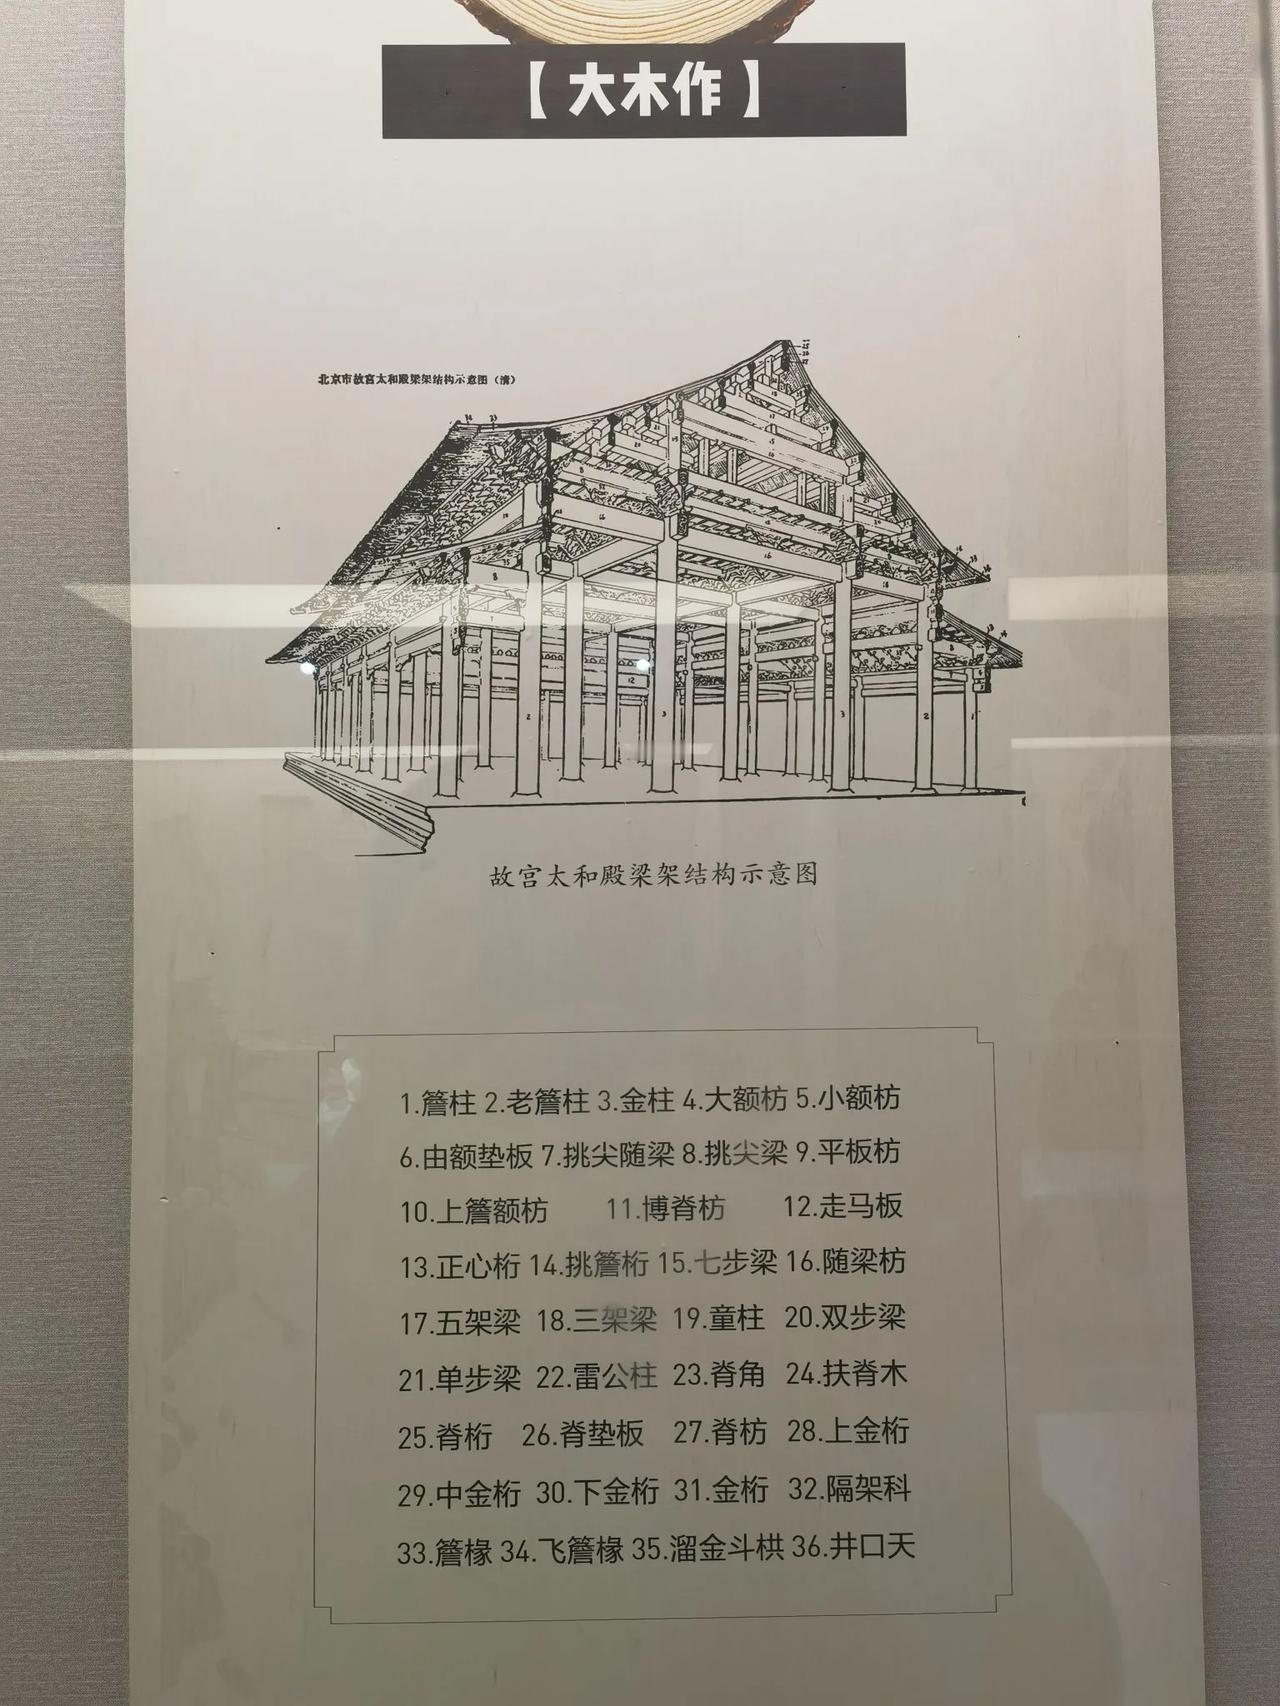 【大木作】
北京市故宫太和殿梁架结构示意图（清）
故宫太和殿梁架结构示意图
1.簷柱 2.老簷柱 3.金柱 4.大额枋 5.小额枋
6.由额垫板 7.挑尖随梁 8.挑尖梁 9.平板枋
10.上簷额枋 11.博脊枋 12.走马板
13.正心桁 14.挑簷桁 15.七步梁 16.随梁枋
17.五架梁 18.三架梁 19.童柱 20.双步梁
21.单步梁 22.雷公柱 23.脊角 24.扶脊木
25.脊桁 26.脊垫板 27.脊枋 28.上金桁
29.中金桁 30.下金桁 31.金桁 32.隔架科
33.簷椽 34.飞簷椽 35.溜金斗栱 36.井口天